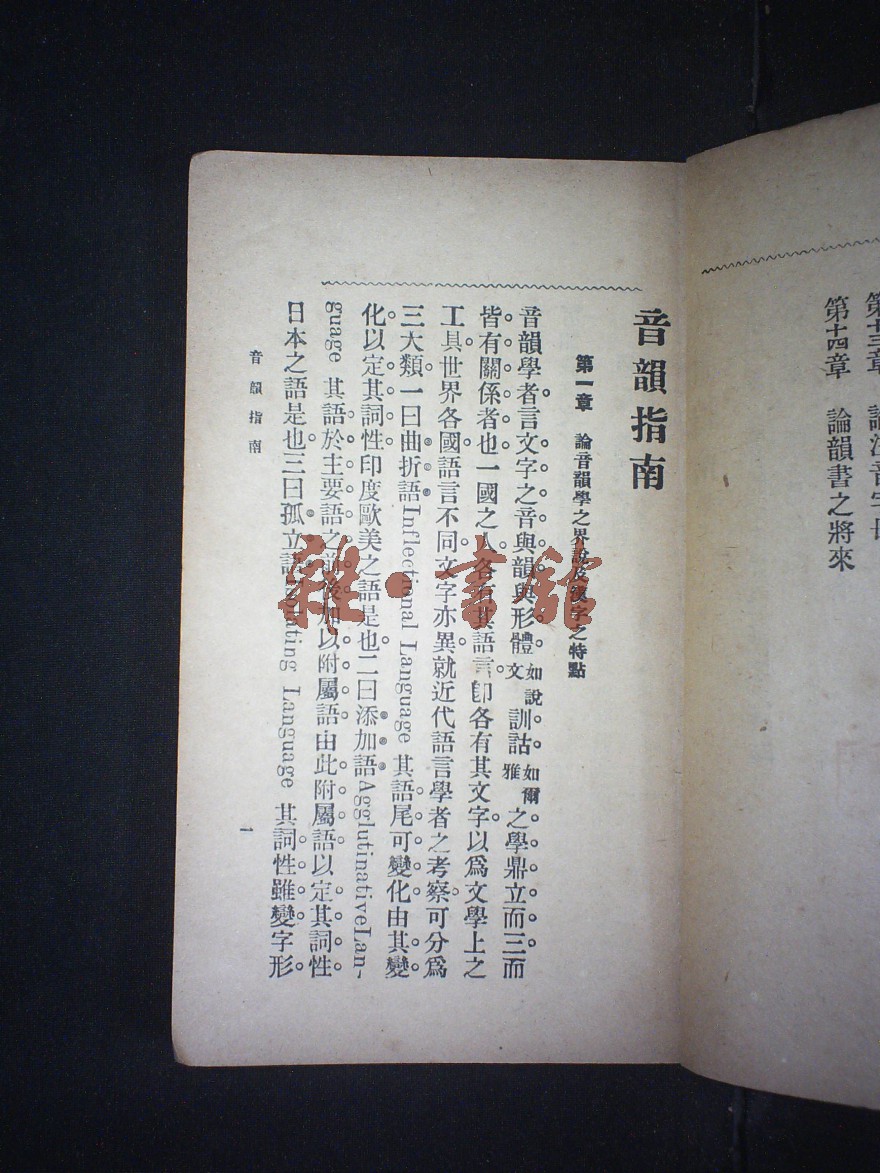 第十三章 論注音字母
第十四章 論韻書之將來
音韻指南
第一章 論音韻學之界說及漢字之特點
音韻學者言文字之音與韻與形體如說文訓詁如爾雅之學鼎立而三而
皆有關係者也一國之人各有其語言卽各有其文字以爲文學上之
工具世界各國語言不同文字亦異就近代語言學者之考察可分爲
三大類一曰曲折語Inflectional Language 其語尾可變化由其變
化以定其詞性印度歐美之語是也二曰添加語AgglutinativeLan-
guage 其語於主要語之前後加以附屬語由此附屬語以定其詞性
日本之語是也三曰孤立語Isolating Language 其詞性雖變字形
音韻指南
一
雜·書館